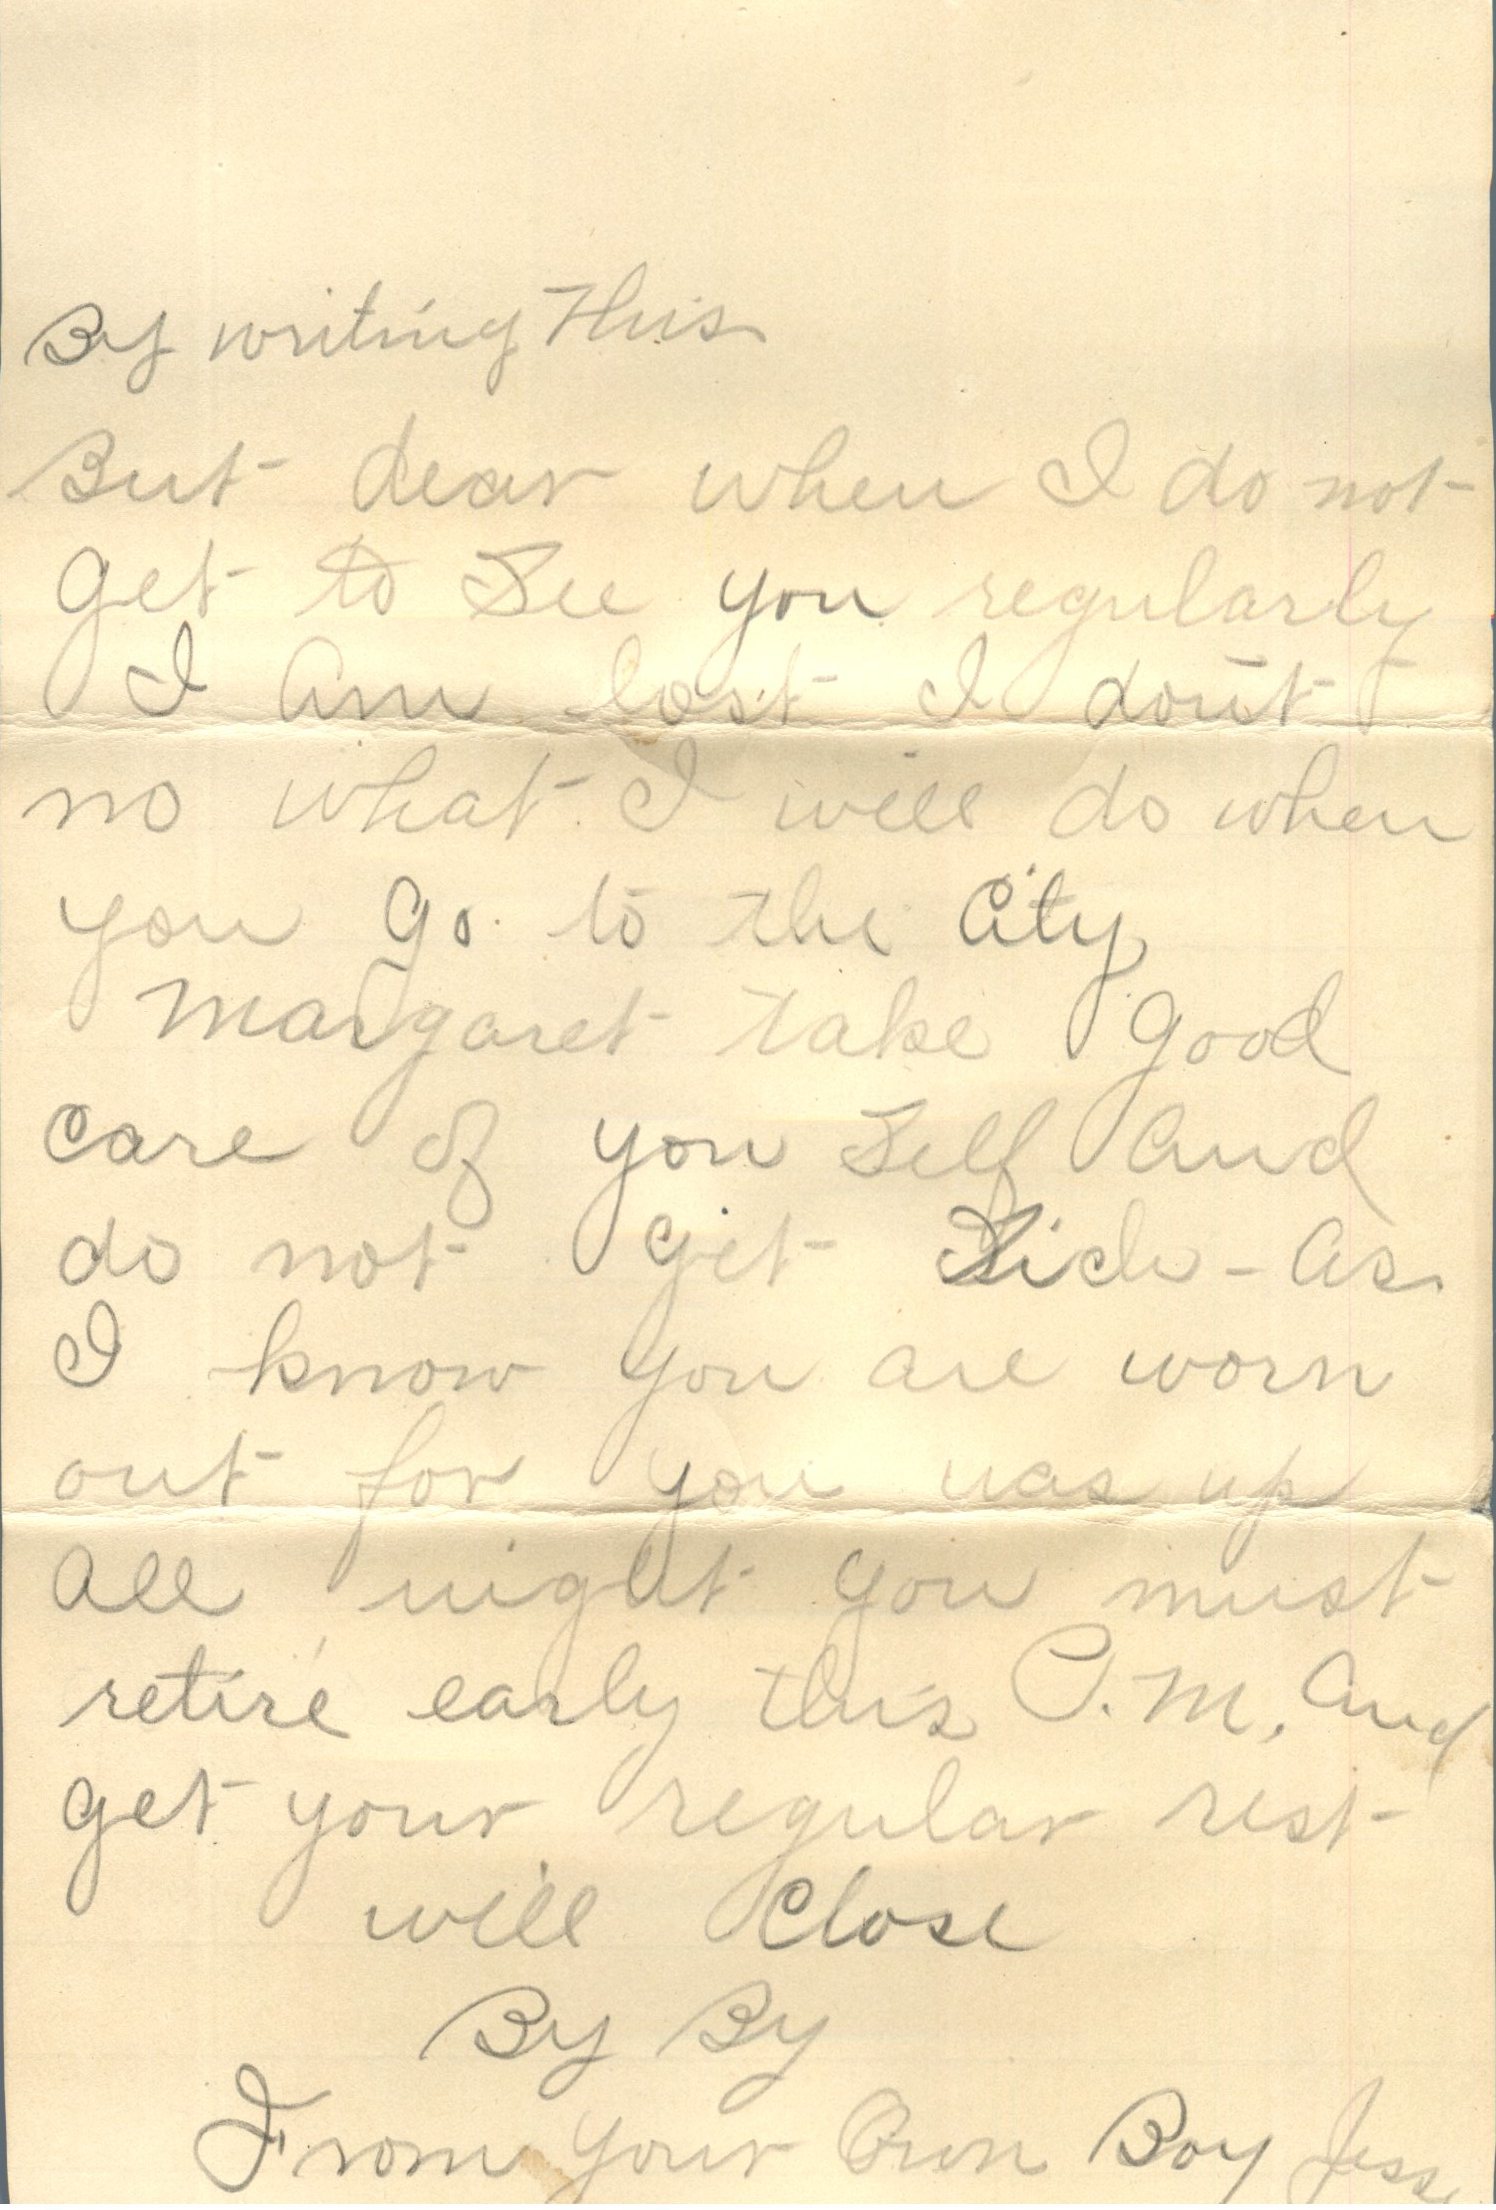 By writing This
But dear when I do not
get to See you regularly
I Am lost I don't
no what I will do when
you go to the City
Margaret take good
Care of you Self And
do not get Sick - As
I know you are worn
out for you was up
All night you must
retire early this P.M. And
get your regular rest
will Close
By By
From Your Own Boy Jess